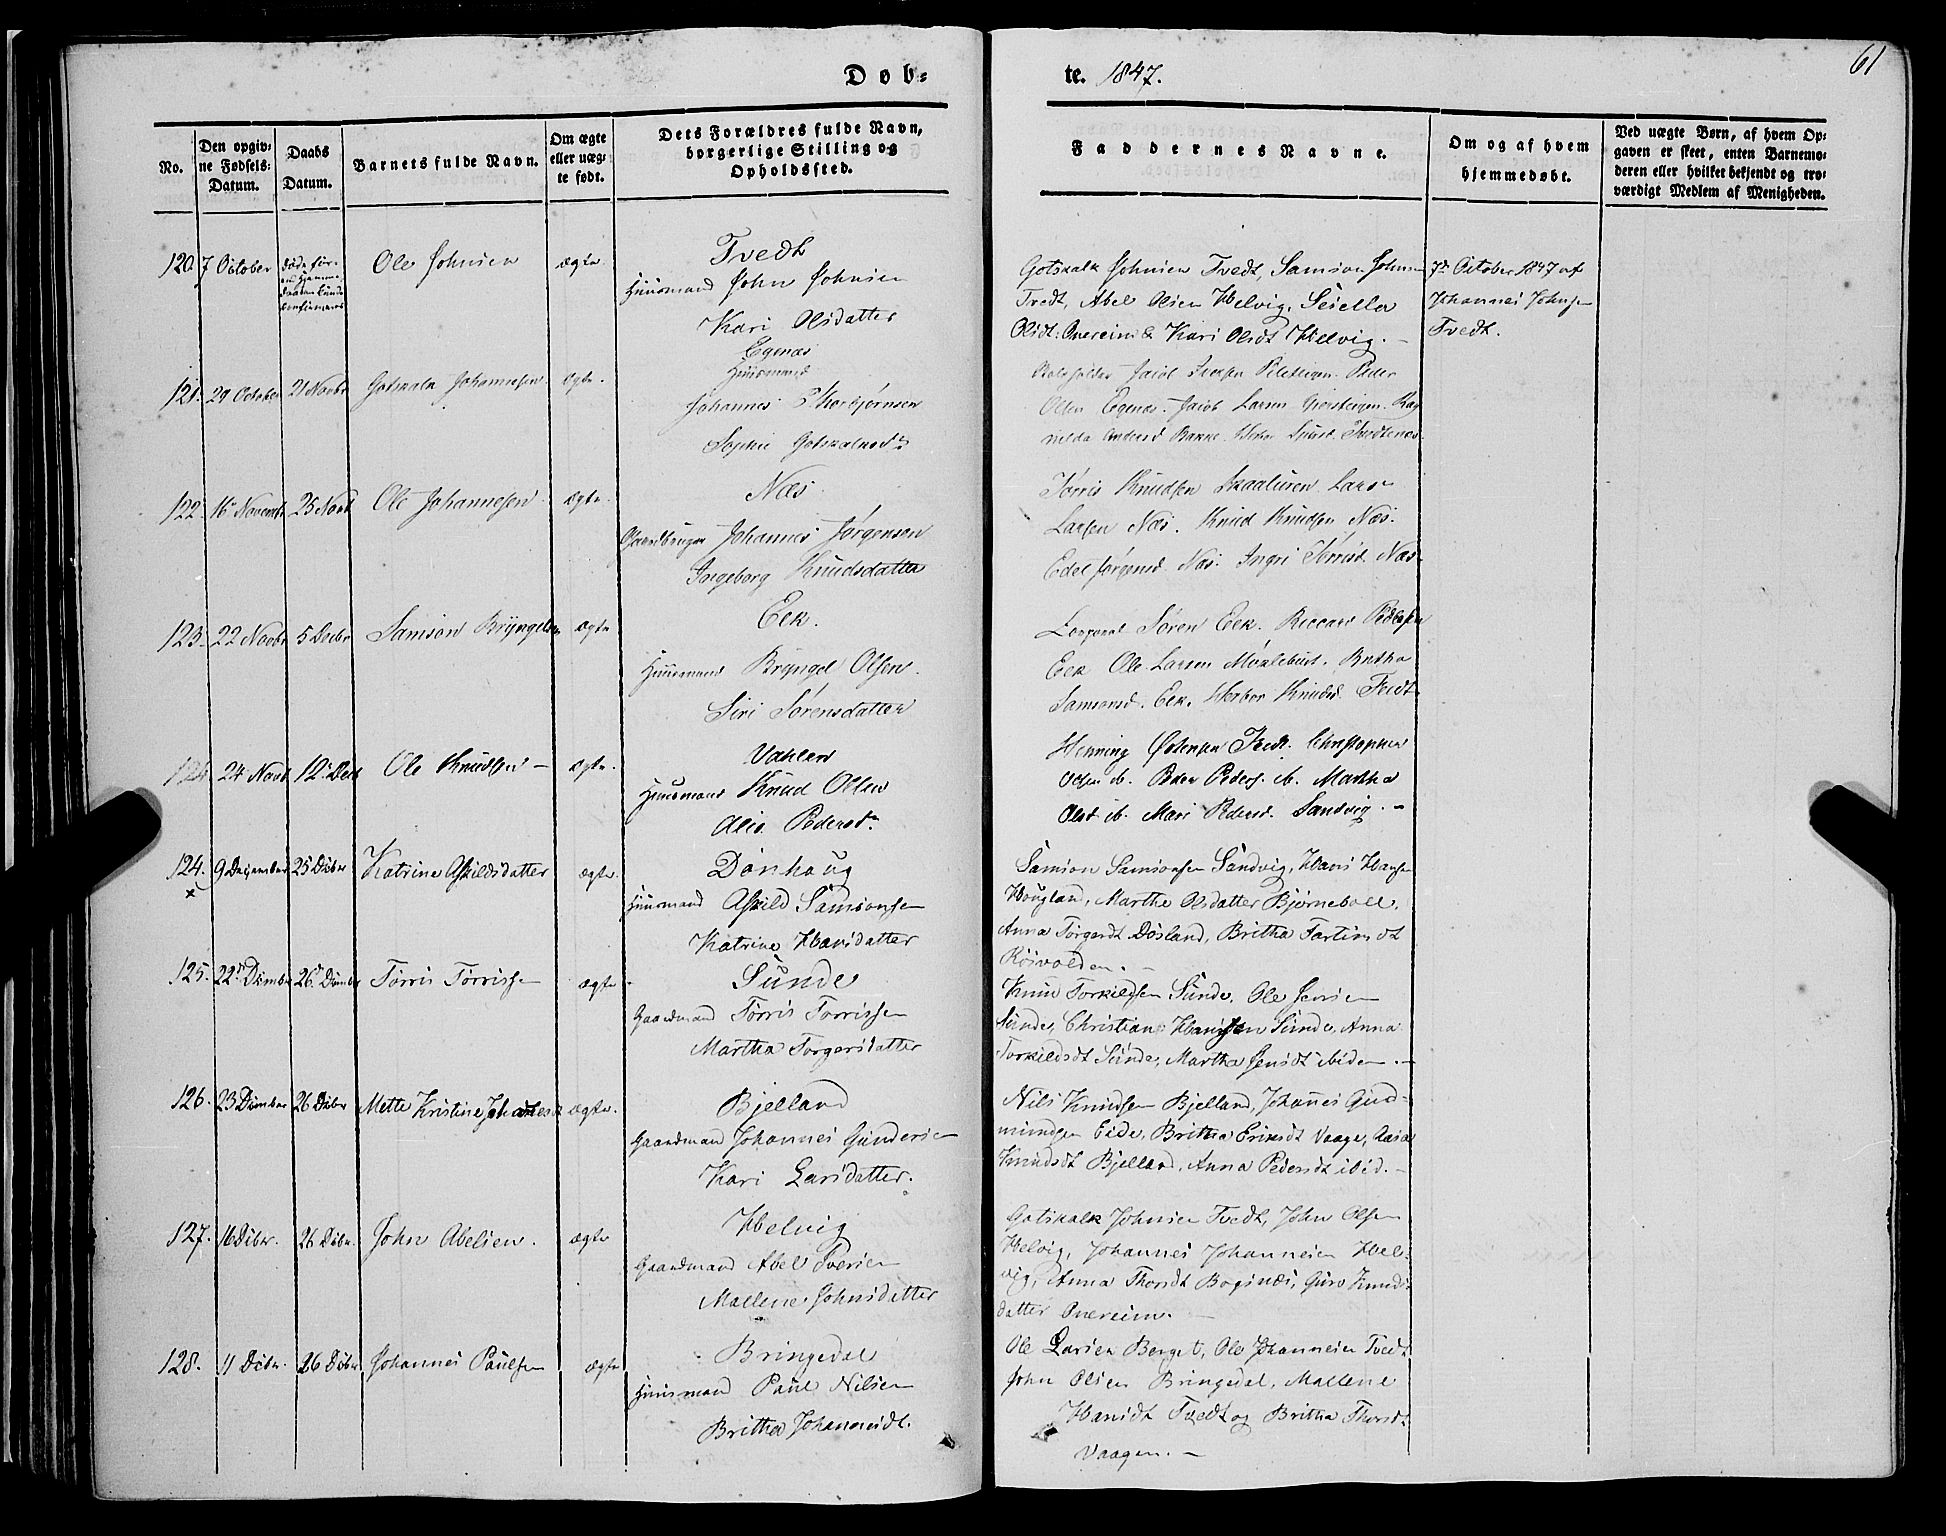 61
Døb-
te. 1847.
No.
Den opgiv-
ne Fødsels-
Datum.
Daabs
Datum.
Barnets fulde Navn.
Om ægte
eller uæg-
te født.
Dets Forældres fulde Navn,
borgerlige Stilling og
Opholdssted.
Faddernes Navne.
Om og af hvem
hjemmedøbt.
Ved uægte Børn, af hvem Op-
gaven er skeet, enten Barnemo-
deren eller hvilket bekjendt og tro-
værdigt Medlem af Menigheden.
120. 7 October
døde før
Ole Johnsen
ægte.
Tvedt
Huusmand John Johnsen
Kari Olsdatter
Gotskalk Johnsen Tvedt, Samson Johnsen
Tvedt, Abel Olsen Helvig, Sisella
Olsdt. Qvereim & Kari Olsdt Helvig. –
7de October 1847 af
Johannes Johnsen
Tvedt.
121. 29 October 21 Novbr Gotskalk Johannesen ægte.
Egenæs
Huusmand
Johannes Thorbjørnsen
Sophie Gotskalksdr
Jacob
Peder
Olsen Egenæs. Jacob Larsen
Andersd Bakke.
122. 16 Novembr 25 Novb Ole Johannesen ægte.
Næs
Gaardbruger Johannes Jørgensen
Ingeborg Knudsdatter
Tørris Knudsen Skaaluren Lars
Larsen Næs. Knud Knudsen Næs.
Edel Jørgensd Næs. Ingri Tørrisd Næs
123. 22 Novbr 5 Decbr Samson Bryngelsen ægte
Eek.
Huusmand Bryngel Olsen.
Siri Sørensdatter
Søren Eek. Riccard Pedersen
Eek Ole Larsen Britha
Samsonsd. Eek. Herbor Knudsd. Tvedt
124 24 Novb 12. Decb Ole Knudsen – ægte.
Huusmand Knud Olsen
Alis Pedersdr.
Henning Tvedt. Christopher
Olsen ib. Peder Peders. ib. Martha
Olsd ib. Mari Pedersd. Sandvig. –
124. 9 December 25 Dcbr Katrine Askildsdatter ægte.
x
Dönhaug
Huusmand Askild Samsonsen
Katrine Hansdatter
Samson Samsonsen Sandvig, Hans Hansen
Hougland, Martha Olsdatter Bjørneboll,
Anna Torgersdt Døsland, Britha
Røsvolden. –
125. 22de Dcmbr 26de Dcmbr Tørris Tørrissen ægte
Sunde
Gaardmand Tørris Tørrissen
Martha Torgersdatter
Knud Torkildsen Sunde, Ole Jensen
Sunde, Christian Hansen Sunde, Anna
Torkildsdt Sunde, Martha Jensdt ibiden. –
126. 23 Dcmber 26 Dcbr Mette Kristine Johannesd. ægte.
Bjelland
Gaardmand Johannes Gundersen
Kari Larsdatter.
Nils Knudsen Bjelland, Johannes Gud-
mundsen Eide, Britha Eriksdt Vaage, Aasa
Knudsdt Bjelland, Anna Pedersdt ibid. –
127. 16 Dcbr. 26 Dcbr. John Abelsen. ægte
Helvig
Gaardmand Abel Iversen
Mallene Johnsdatter
Gotskalk Johnsen Tvedt, John Olsen
Helvig, Johannes Johannesen Hel-
vig, Anna Thorsdt Bogsnæs, Guro Knuds-
datter Qvereim. –
128. 11 Dcbr. 26 Dcbr. Johannes Paulsen ægte
Bringedal
Huusmand Paul Nilsen
Britha Johannesdt.
Ole Larsen Berget, Ole Johannesen Tvedt,
John Olsen Bringedal, Mallene
Hansdt Tvedt og Britha Thorsdt
Vaagen. –